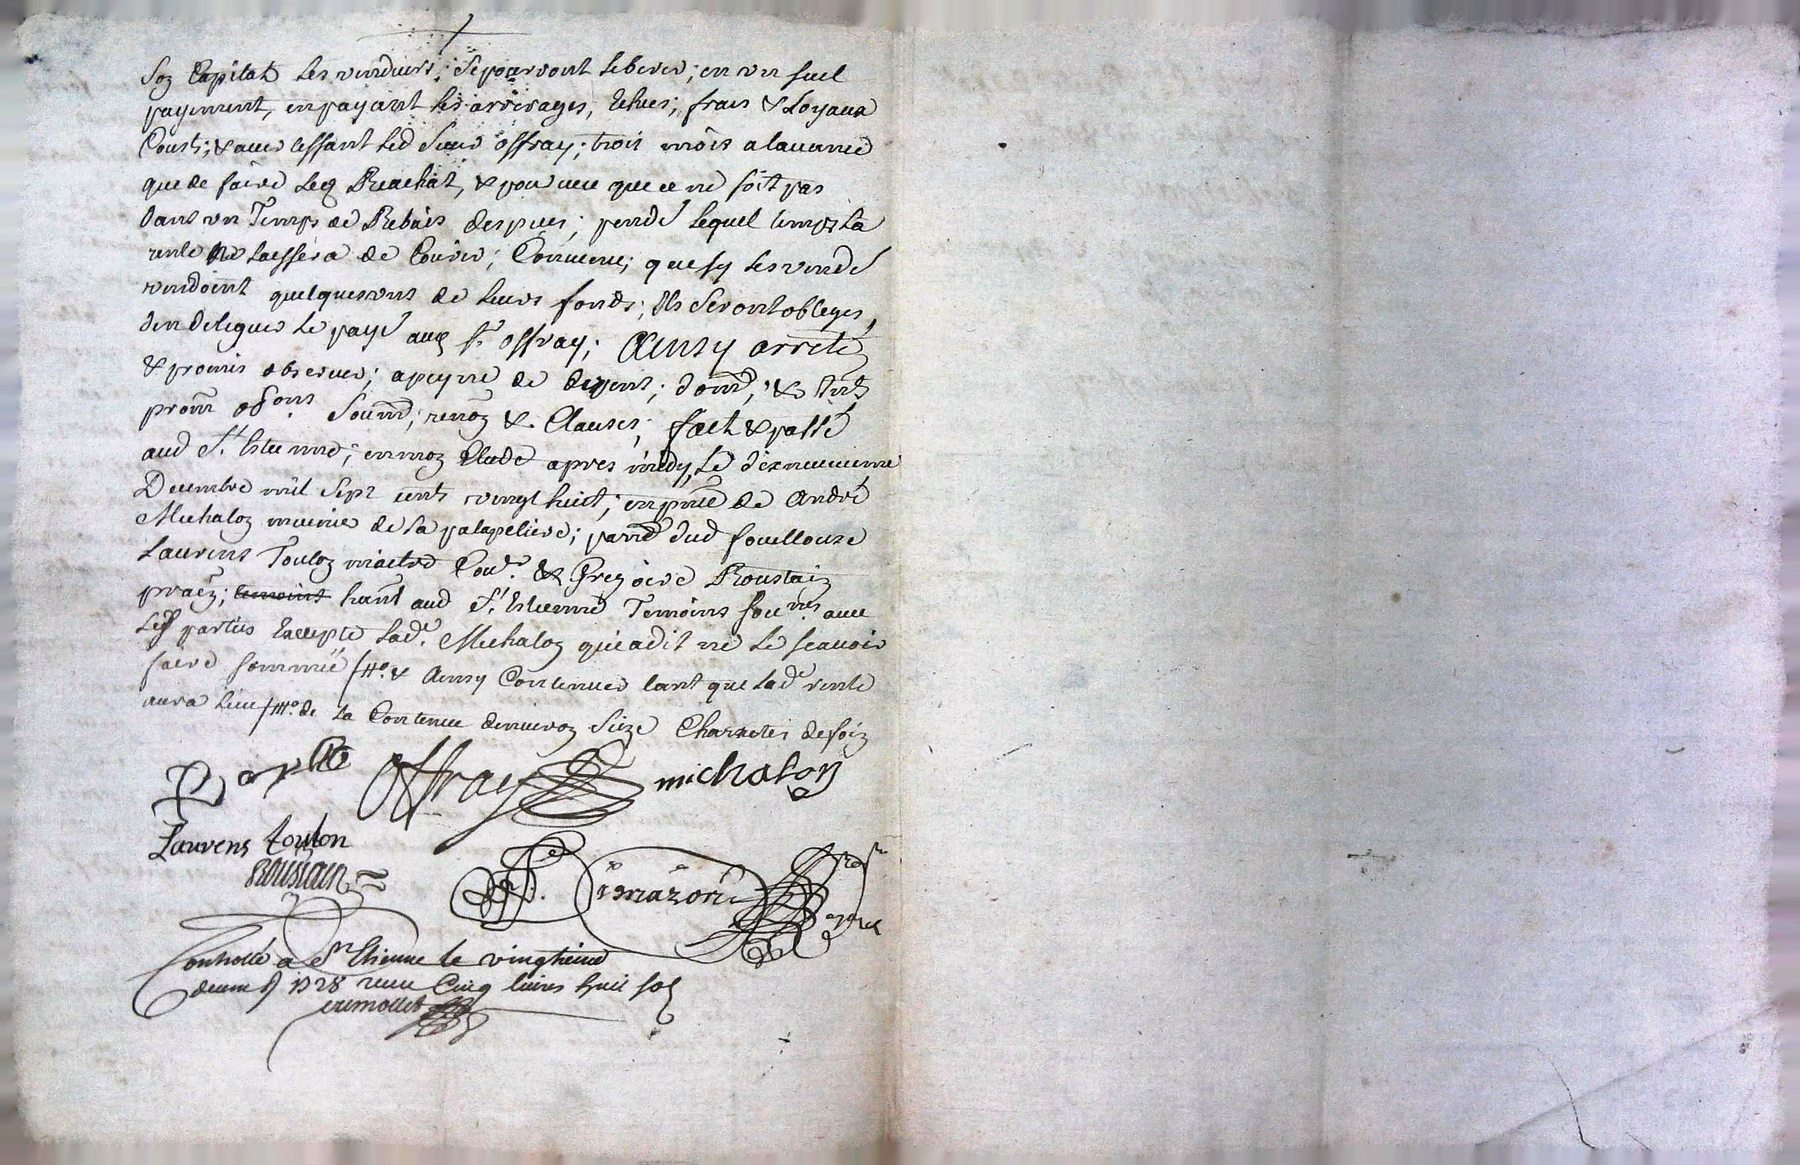 son Capital les vendeurs; se pourront liberer; en un seul
payement, en payant les arrerages, echus; frais & Loyaux
Cousts; & avertissant led Sieur offray; trois mois a lavance
que de faire led Reachat, & pourveu que ce ne soit pas
dans un Temps de Rabais despeces; pendt lequel temps la
rente ne laissera de Courir; Convenu; que sy les vendrs
vendoint quelquesuns de leurs fonds; ils seront obliges,
den deleguer le paye aud sr. offray; Ainsy arreté
& promis observer; a peyne de depens; dom; & Intz
prom obons Soum; renon & Clauses; fait & passé
aud St. Estienne; en mon Etude apres midy, Le dixneuvieme
Decembre mil Sept cents vingt huit; en pnce de André
Michalon munier de la palapeliere; parr dud fouillouse
Laurens Toulon maitre Cour. & Gregoire Roustain
pratn; temoins hant aud St Estienne Temoins soubnes avec
Les parties Excepte lade. Michalon qui a dit ne le scavoir
faire sommée / & Ainsy Continuer tant que lade rente
aura lieu / de la Contenue denviron Seize Charretes de foin
offray michalon
Laurens toulon
Roustain
Controllé a St Etienne le vingtieme
decembre 1728 receu Cinq livres huit sols